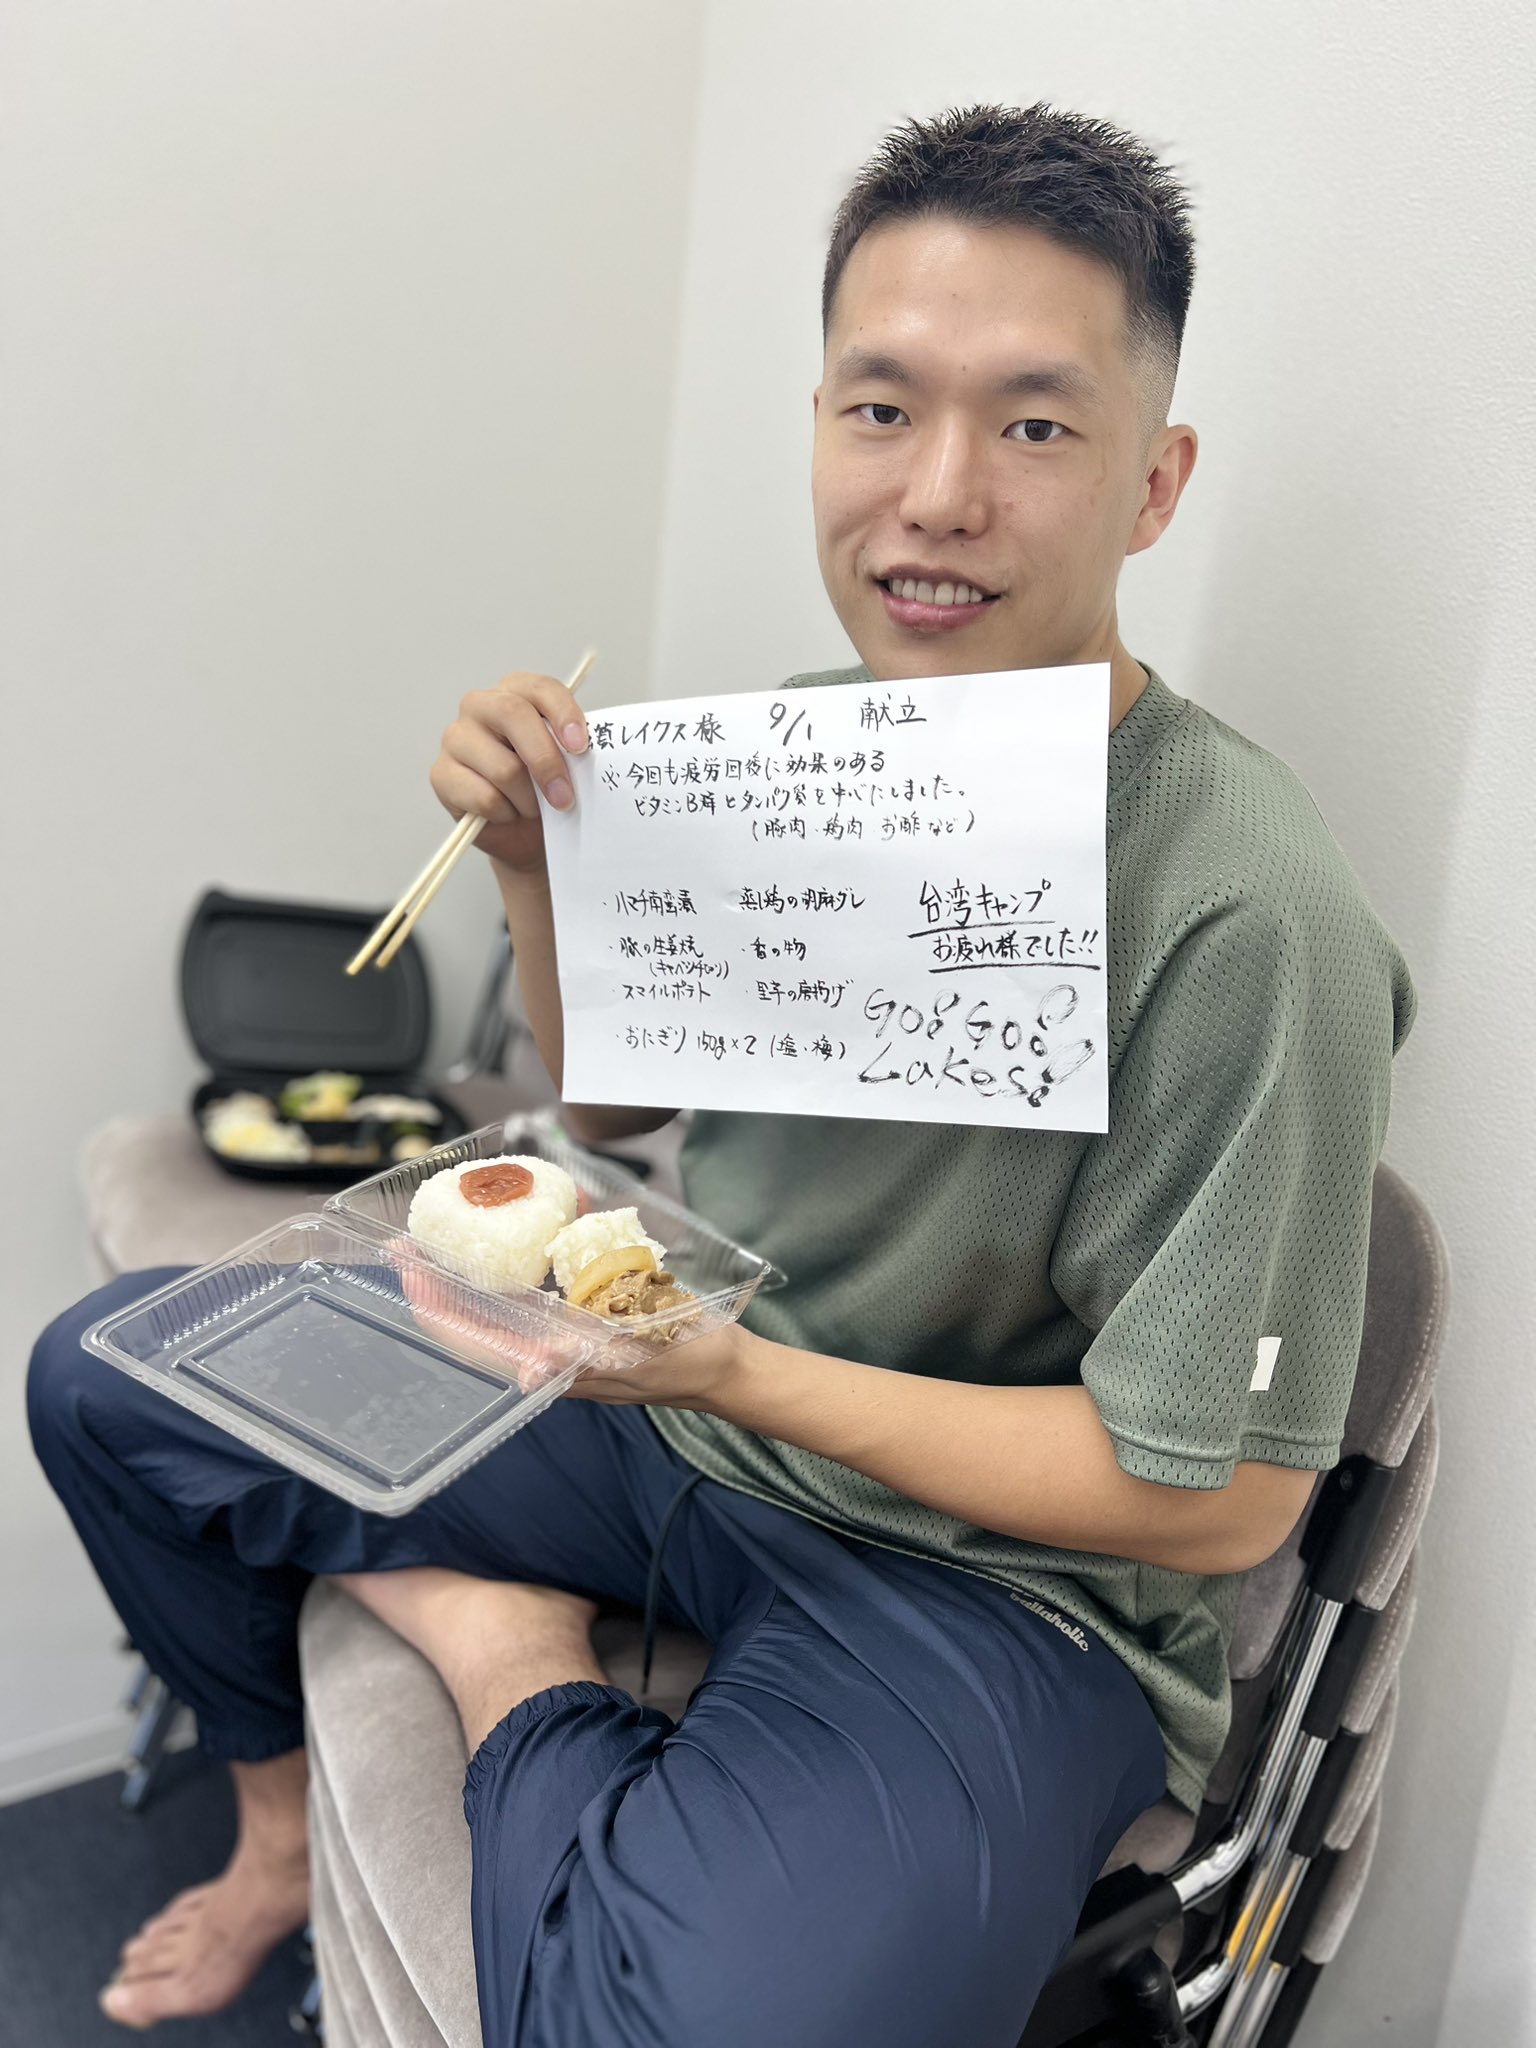 賀レイクス様 9/1 献立
※今回も疲労回復に効果のある
ビタミンB群とタンパク質を中心にしました。
(豚肉・鶏肉・お酢など)
・ハマチ南蛮漬
・豚の生姜焼
(キャベツチヂリ)
・スマイルポテト
・おにぎり 150g×2 (塩・梅)
蒸し鶏の胡麻ダレ
・香の物
・里芋の唐揚げ
台湾キャンプ
お疲れ様でした!!
Go! Go!
Lakes!
ballaholic